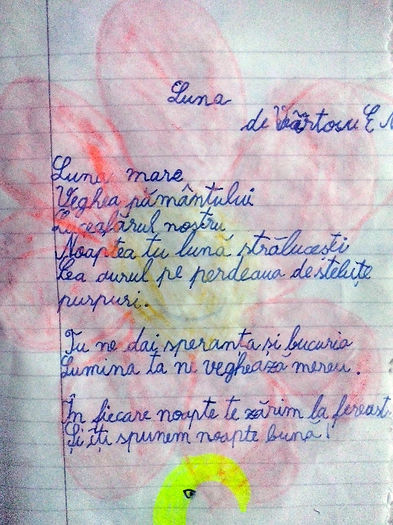 Luna
de Vârtosu E
Luna mare
Veghea pământului
Luceafărul nostru
Noaptea tu lună strălucești
Ca aurul pe perdeaua de steluțe
purpuri.
Tu ne dai speranta și bucuria
Lumina ta ne veghează mereu.
În fiecare noapte te zărim la fereast
Și îți spunem noapte bună!